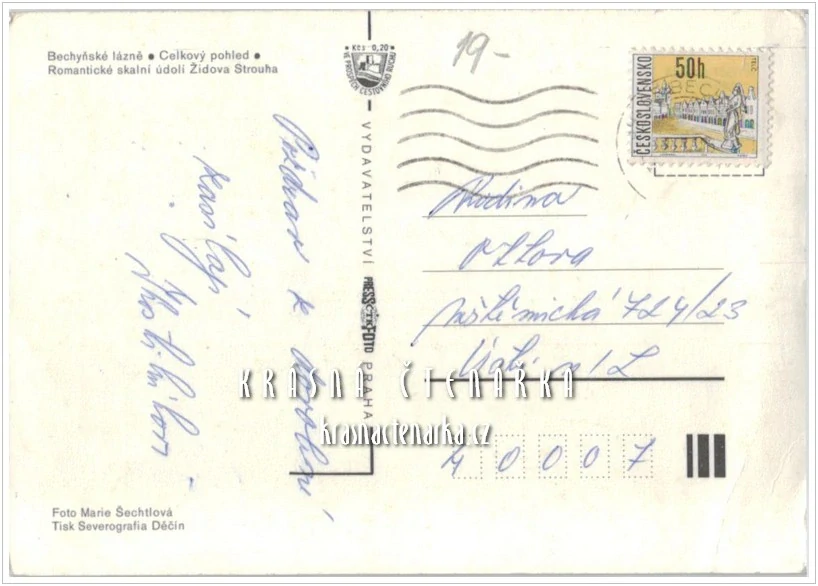 Bechyňské lázně • Celkový pohled •
Romantické skalní údolí Židova Strouha
Kčs 0,20
VE PROSPĚCH CESTOVNÍHO RUCHU
19-
ČESKOSLOVENSKO
50h
TELČ
VYDAVATELSTVÍ PRESSFOTO PRAHA
ČTK
Pozdrav z dovolené
zasílají
Rodina
724/23
Ústí n/L
40007
KRÁSNÁ ČTENÁŘKA
krasnactenarka.cz
Foto Marie Šechtlová
Tisk Severografia Děčín